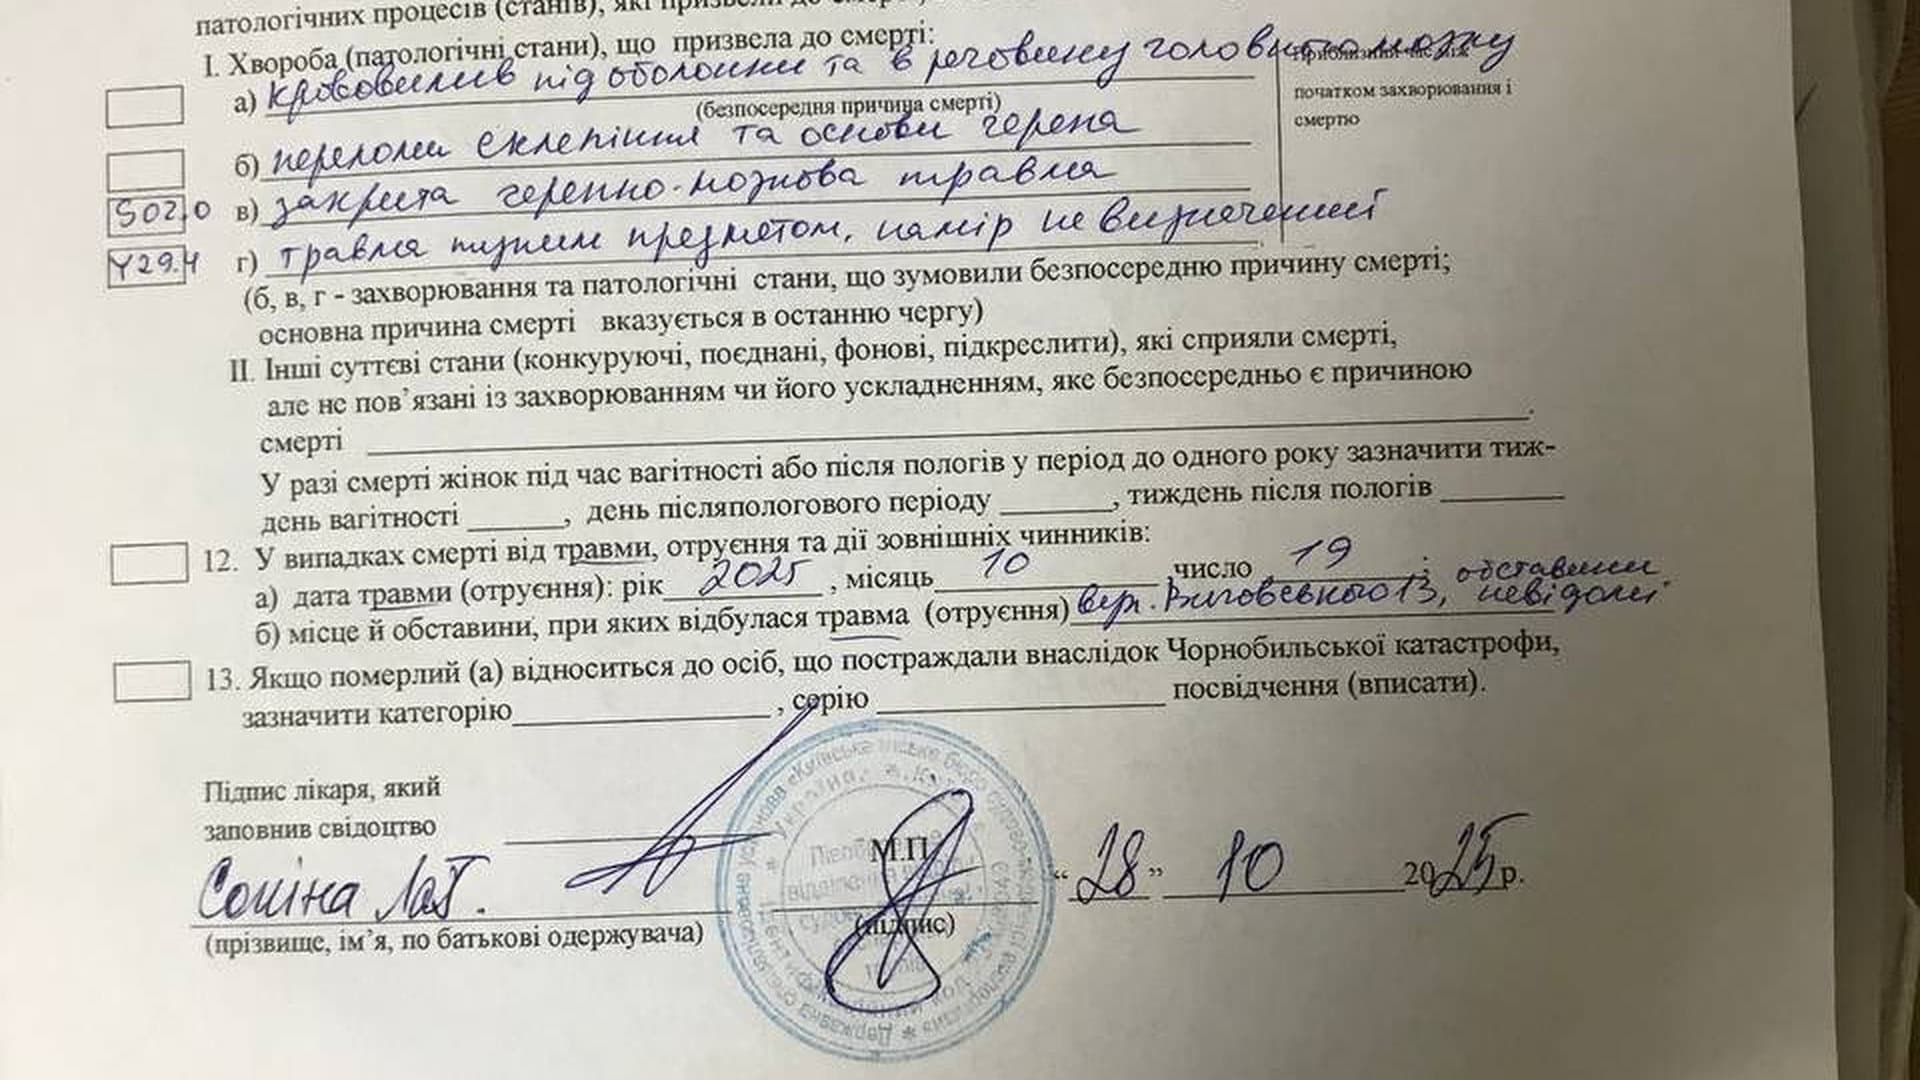 патологічних процесів (станів), які призвели до смерті,
I. Хвороба (патологічні стани), що призвела до смерті:
а) крововилив під оболонки та в речовину головного мозку
(безпосередня причина смерті)
початком захворювання і
смертю
б) переломи склепіння та основи черепа
S02.0 в) закрита черепно-мозкова травма
Y29.4 г) травма тупим предметом, намір не визначений
(б, в, г - захворювання та патологічні стани, що зумовили безпосередню причину смерті;
основна причина смерті вказується в останню чергу)
II. Інші суттєві стани (конкуруючі, поєднані, фонові, підкреслити), які сприяли смерті,
але не пов’язані із захворюванням чи його ускладненням, яке безпосередньо є причиною
смерті
У разі смерті жінок під час вагітності або після пологів у період до одного року зазначити тиж-
день вагітності , день післяпологового періоду , тиждень після пологів
12. У випадках смерті від травми, отруєння та дії зовнішніх чинників:
а) дата травми (отруєння): рік 2025, місяць 10 число 19;
б) місце й обставини, при яких відбулася травма (отруєння) вул. Виговського 13, обставини невідомі.
13. Якщо померлий (а) відноситься до осіб, що постраждали внаслідок Чорнобильської катастрофи,
зазначити категорію , серію посвідчення (вписати).
Підпис лікаря, який
заповнив свідоцтво
М.П.
“28” 10 2025 р.
(прізвище, ім’я, по батькові одержувача) (підпис)